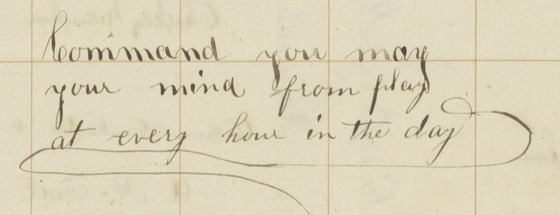 Command you may
your mind from play
at every hour in the day